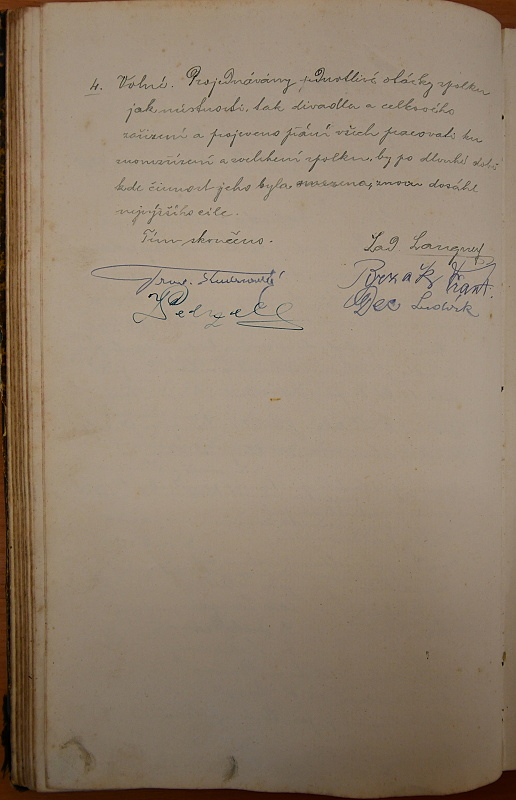 4. Volné. Projednávány jednotlivé otázky spolku
jak místnosti, tak divadla a celkového
zařízení a projeveno přání všech pracovati ku
znovuzřízení a zvelebení spolku, by po dlouhé době
kde činnost jeho byla omezena, znovu dosáhl
nejvyššího cíle.
Tím skončeno.
Lad. Langner
Frant.
Brzák Frant.
Pelzel
Dec Ludvík